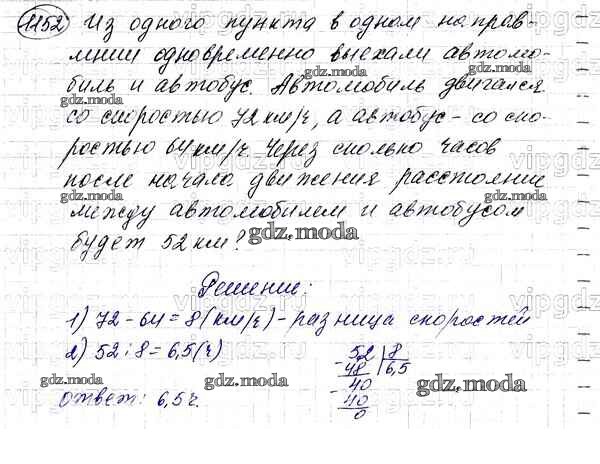 1152 Из одного пункта в одном направ-
лении одновременно выехали автомо-
биль и автобус. Автомобиль двигался
со скоростью 72 км/ч, а автобус - со ско-
ростью 64 км/ч. Через сколько часов
после начала движения расстояние
между автомобилем и автобусом
будет 52 км?
gdz.moda
Решение:
1) 72 - 64 = 8 (км/ч) - разница скоростей
2) 52 : 8 = 6,5 (ч)
52 | 8
- 48 | 6,5
- 40
40
0
ответ: 6,5 ч.
gdz.moda